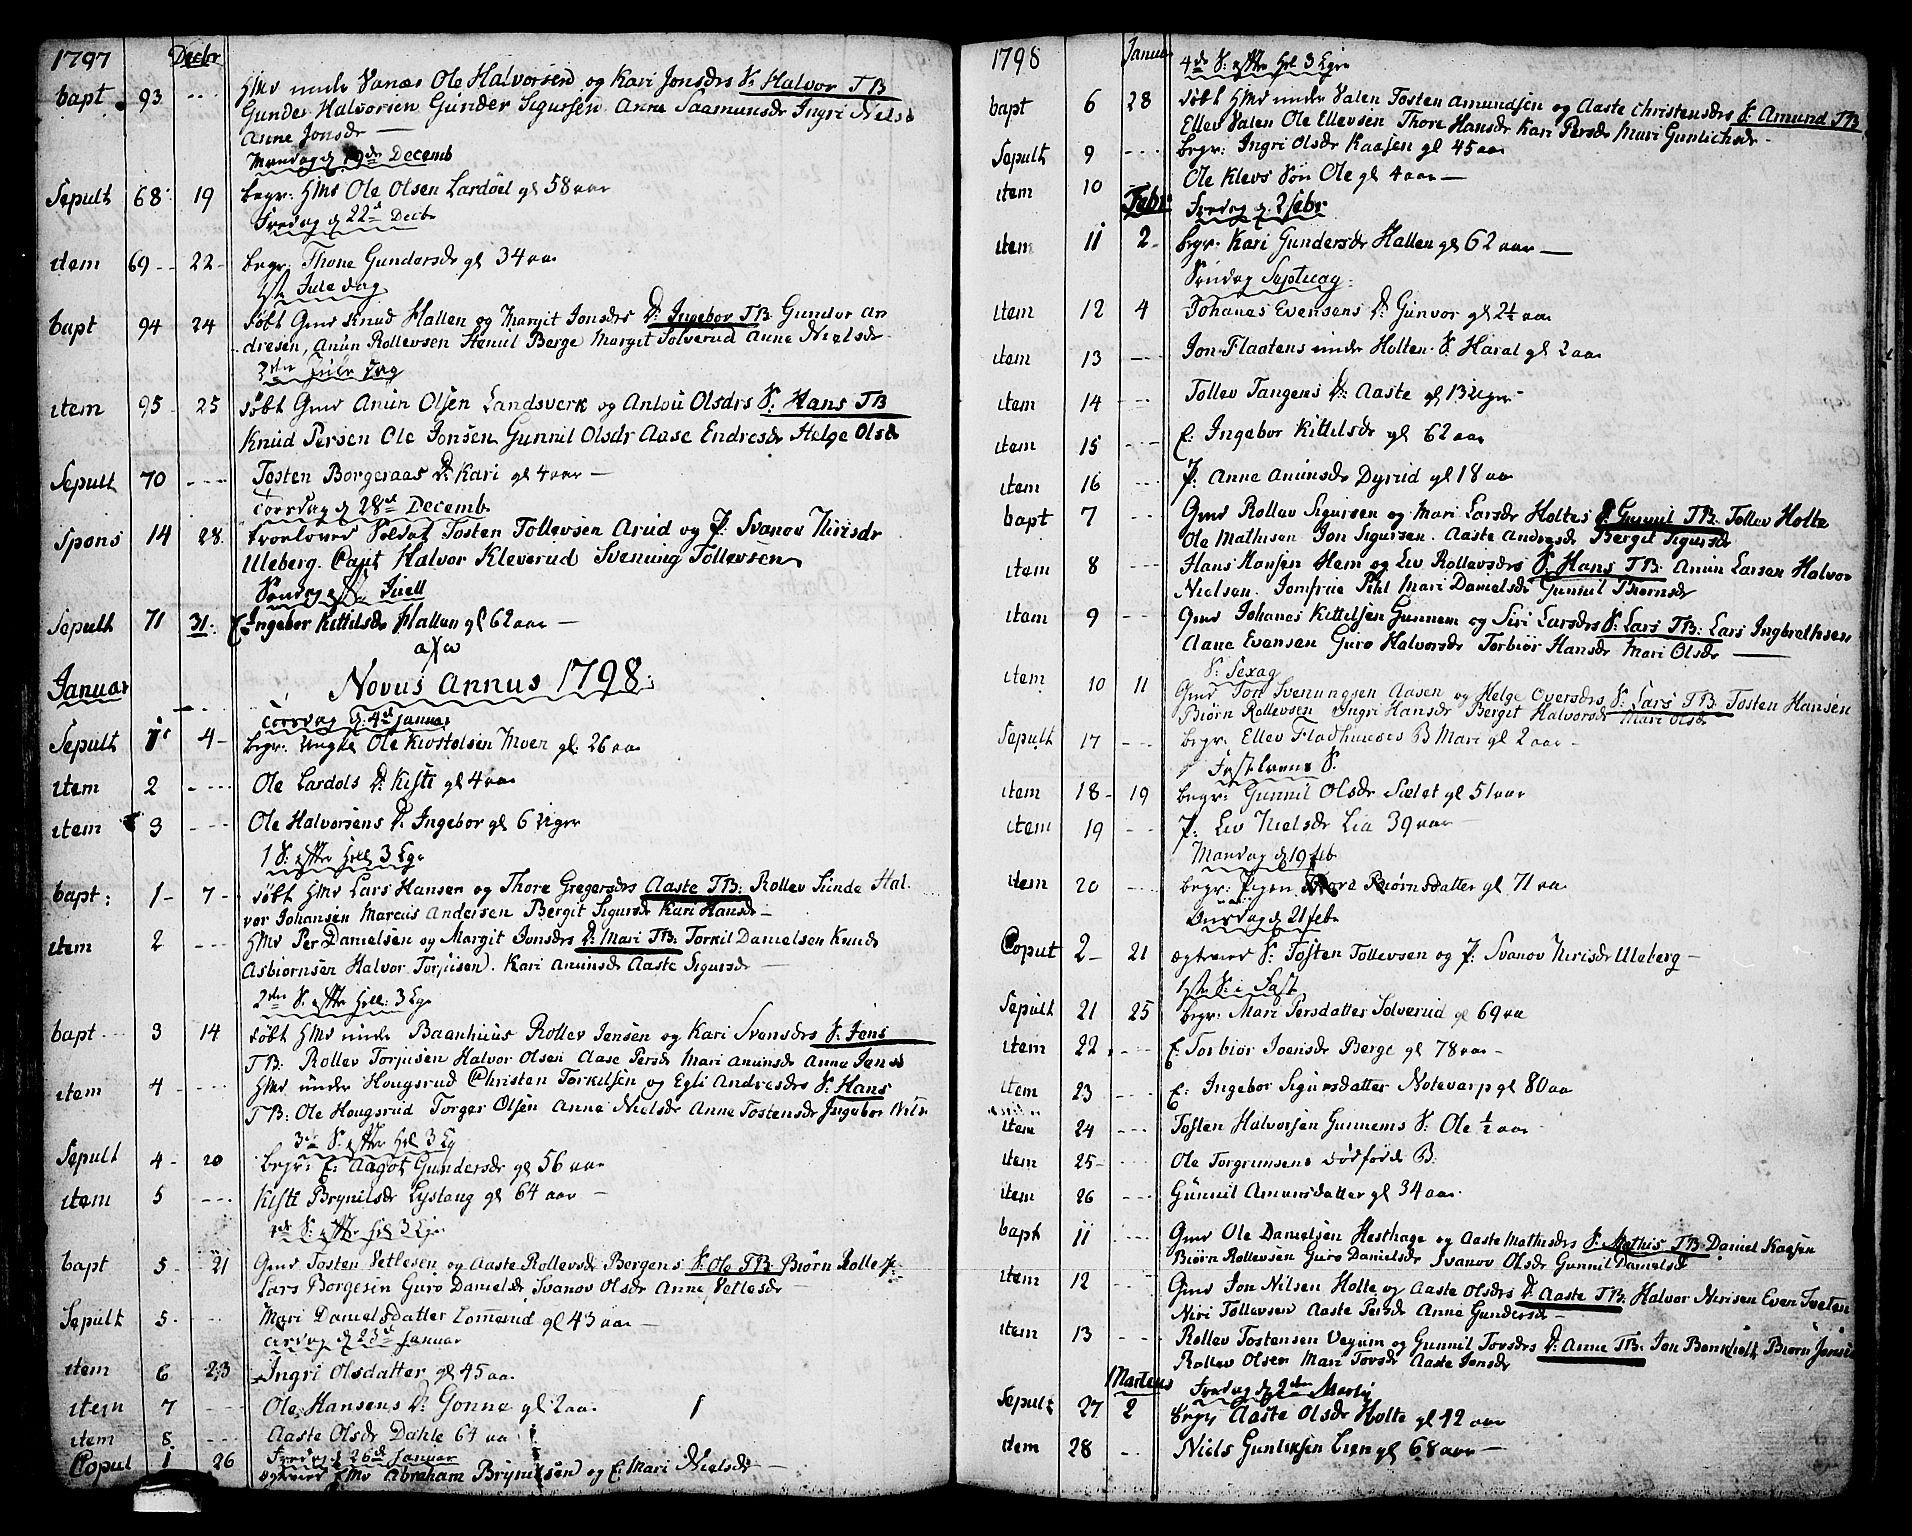 1797 Decbr
bapt. 93 --- HMd unde Vanæs Ole Halvorsen og Kari Jonsdrs S. Halvor TB
Gunder Halvorsen Gunder Sigursen Anne Saamunsdr Ingri Nielsd
Anne Jonsdr —
Mandag d 19de Decemb
Sepult 68 19 begr: HMd Ole Olsen Lardöel gl 58 aar
Fredag d 22d Decbr
item 69 -- 22 - begr: Thone Gundersdr gl 34 aa
1ste Juledag
bapt 94 24 döbt Gmd Knud Hallen og Margit Jonsdrs D: Ingebor TB Gunder An
dresen, Anun Rollevsen Hemil Berge Margit Solverud Anne Nielsdr
2den Jule Dag
item 95 25 döbt Gmd Anun Olsen Landsverk og Anlou Olsdrs S: Hans TB
Knud Persen Ole Jonsen Gunnil Olsdr Aase Endresdr Helge Olsdr
Sepult 70 --- Tosten Borgeraas D: Kari gl 4 aar —
Torsdag d 28de Decemb
Spons 14 28 Trolover Soldat Tosten Tollevsen Arud og P: Svanov Nirisdr
Uleberg. Caut Halvor Kleverud Svenung Tollevsen
Söndag eft. Juell
Sepult 71 31. E: Ingebor Kittilsdr Hallen gl 62 aar —
a/w
Januar Novus Annus 1798.
Torsdag d: 4de Januar
Sepult 1 4 - begr: Ungke Ole Kirstofsen Moen gl: 26 aa
item 2 --- Ole Lardols D: Kisti gl 4 aar
item 3 --- Ole Halvorsens D. Ingebor gl 6 uger
1 S: efter Hell 3 Kge
bapt: 1 - 7 - döbt HMd Lars Hansen og Thore Gregersdrs Aaste TB: Rollev Sunde Hal.
vor Johansen Marcus Andersen Bergit Sigursdr Kari Hansdr —
item 2 --- HMd Per Danielsen og Margit Jonsdrs D: Mari TB: Torkil Danielsen Knud
Asbiörnsen Halvor Torjusen. Kari Anunsdr Aaste Sigursdr —
2den S. efter Hell: 3 Kge
bapt 3 14 döbt HMd unde Baanhuus Rollev Jensen og Kari Svensdrs S: Jens
TB: Rollev Torjusen Halvor Olsen Aase Persdr Mari Anunsdr Anne Jensd
item 4 --- HMd under Hougsrud Christen Torkilsen og Egli Andresdrs S: Hans
TB: Ole Hougsrud Torger Olsen Anne Nielsdr Anne Tostensdr Ingebor Niln
3die S. efter Hel 3 Kg
Sepult 4 - 20 begr: E: Aagot Gundersdr gl 56 aar
item 5 --- Kisti Brynilsdr Lystang gl 64 aar —
4de S: efter Hel 3 Kge
bapt 5 - 21 Gmd Tosten Vetlesen og Aaste Rollevsdr Bergens S: Ole TB: Biörn Rollevs:
Lars Borgesen Guro Danielsdr Svanov Olsdr Anne Vetlesdr
Sepult 5 - --- Mari Danielsdatter Lomerud gl 43 aar —
Tirsdag d 23de Januar
item 6 23 Ingri Olsdatter gl 45 aa.
item 7 --- Ole Hansens D: Gonne gl 2 aar
item 8. --- Aaste Olsdr Dahle 64 aa
Fredag d 26de Januar
Copul 1 26 ægtevied EMd Abraham Brynilsen og E: Mari Nielsdr —
1798 Januar 4de S: efter Hel 3 Kge
bapt 6 28 döbt HMd under Valen Tosten Amundsen og Aaste Christensdrs S: Amund TB
Ellev Valen Ole Ellevsen Thore Hansdr Kari Persdr Mari Gunlichsdr —
Sepult 9 ---- begr: Ingri Olsdr Kaasen gl 45 aa
item 10 --- Ole Klevs Sön Ole gl 4 aar —
Febr: Fredag d 2 febr
item 11 2 - begr: Kari Gundersdr Hallen gl 62 aar —
Söndag Septuag:
item 12 4 Johanes Evensens D: Gunvor gl 2½ aa
item 13 --- Jon Flaatens unde Holten S. Haral gl 2 aar
item 14 --- Tollev Tangens D: Aaste gl 13 Uger
item 15 --- E: Ingebor Kittilsdr gl 62 aar
item 16 --- P: Anne Anunsdr Dyrud gl 18 aa
bapt 7 --- Gmd Rollev Sigursen og Mari Larsdr Holtes D. Gunnil TB: Tollev Holte
Ole Mathisen Jon Sigursen. Aaste Andresdr Bergit Sigursdr
item 8 --- Hans Hansen Hem og Liv Rollevsdrs S. Hans TB: Anun Larsen Halvor
Nielsen. Jomfrue Pihl Mari Danielsdr Gunnil Thornsdr
item 9 --- Gmd Johanes Kittilsen Gunnem og Siri Larsdrs S: Lars TB: Lars Ingbrethsen
Aane Evensen Guro Halvorsdr Torbiör Hansdr Mari Olsdr —
S. Sexag
item 10 11 Gmd Jon Svenungsen Aasen og Helge Oversdrs S: Lars TB: Tosten Hansen
Biörn Rollevsen Ingri Hansdr Bergit Halvorsdr Mari Olsdr
Sepult 17 --- begr. Ellev Fladhunses B Mari gl 2 aar —
Fastelavns S.
item 18 - 19 begr: Gunnil Olsdr Sælet gl 51 aar
item 19 --- P: Liv Nielsdr Lia 39 aar —
Mandag d 19 feb
item 20 --- begr: Pigen Thora Biörnsdatter gl 71 aa
Onsdag d 21 feb
Coput 2 - 21 ægtevied S: Tosten Tollevsen og P: Svanov Nirisdr Uleberg —
1ste S: i Fast
Sepult 21 25 begr: Mari Persdatter Solverud gl 69 aa
item 22 --- E: Torbiör Joensdr Berge gl 78 aar —
item 23 --- E: Ingebor Sigursdatter Notevarp gl 80 aa
item 24 --- Tosten Halvorsen Gunnems S: Ole ½ aar
item 25 - --- Ole Torgrimsens dödföde B:
item 26 --- Gunnil Amunsdatter gl 34 aar
bapt 11 --- Gmd Ole Danielsen Hesthage og Aaste Mathisdrs S. Mathis TB: Daniel Kaasen
Biörn Rollevsen Guro Danielsdr Svanov Olsdr Gunnil Danielsd
item 12 Gmd Jon Nilsen Holte og Aaste Olsdrs D. Aaste TB: Halvor Nirisen Even Tveten
Niri Tollevsen Aaste Persdr Anne Gundersdr —
item 13 --- Rollev Tostensen Vegum og Gunnil Torsdrs D: Anne TB: Jon Bonkholt Biörn Jonsen
Rollev Olsen Mari Torsdr Aaste Jonsdr
Martius Fredag d 2den Martij
Sepult 27 2 begr Aaste Olsdr Holte gl 42 aar
item 28 --- Niels Gunliksen Lien gl 68 aar —